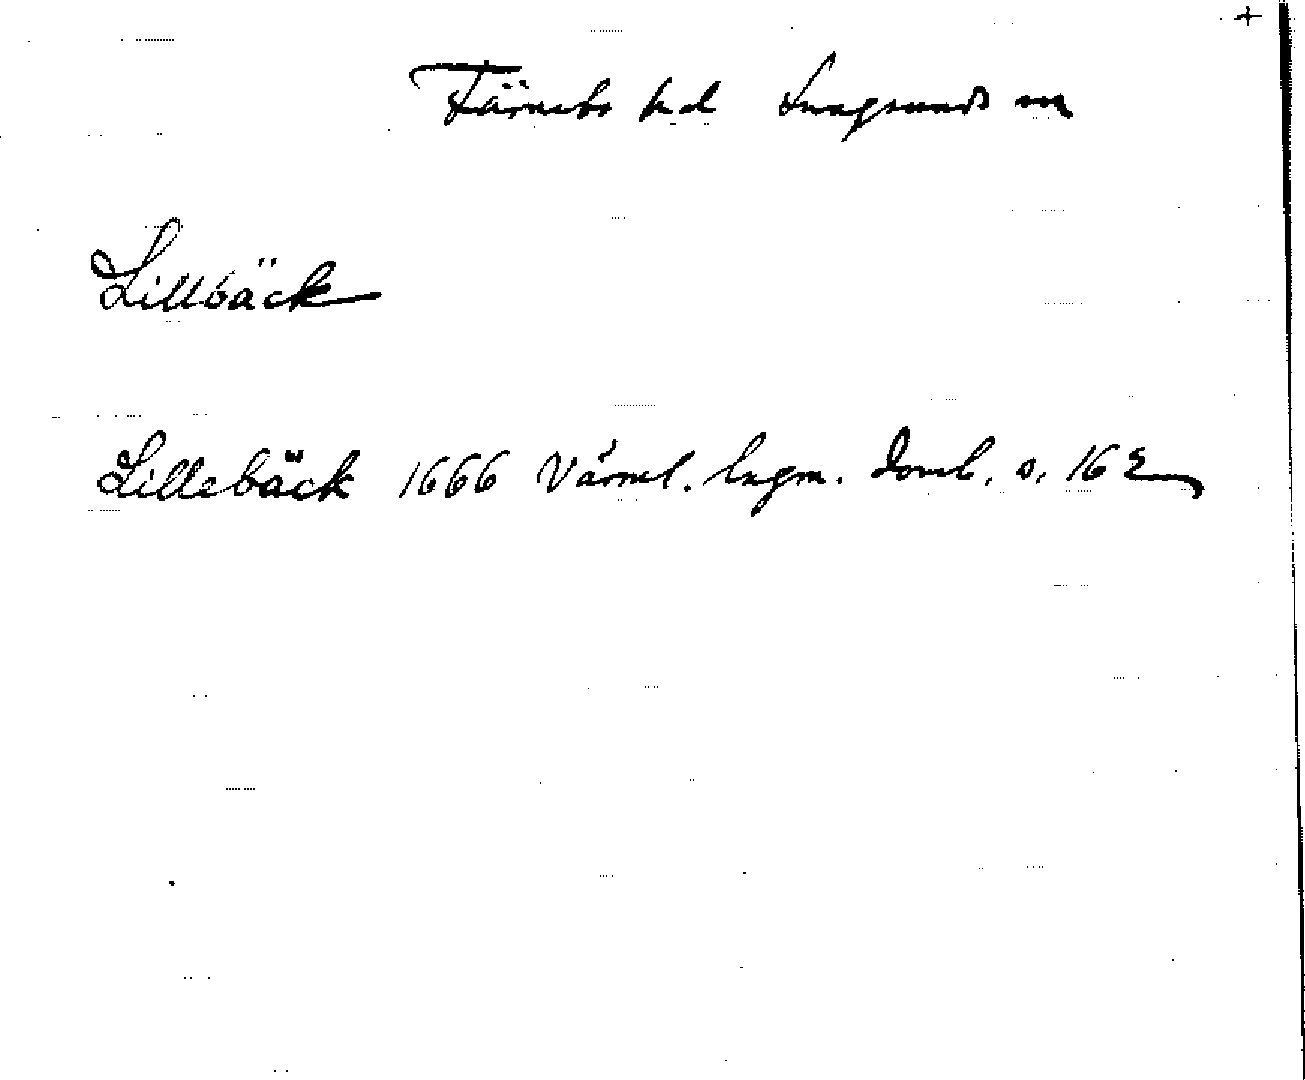 +
Färnebo hd Lungsunds sn
Lillbäck
Lillebäck 1666 Värml. lagm. domb. s. 162